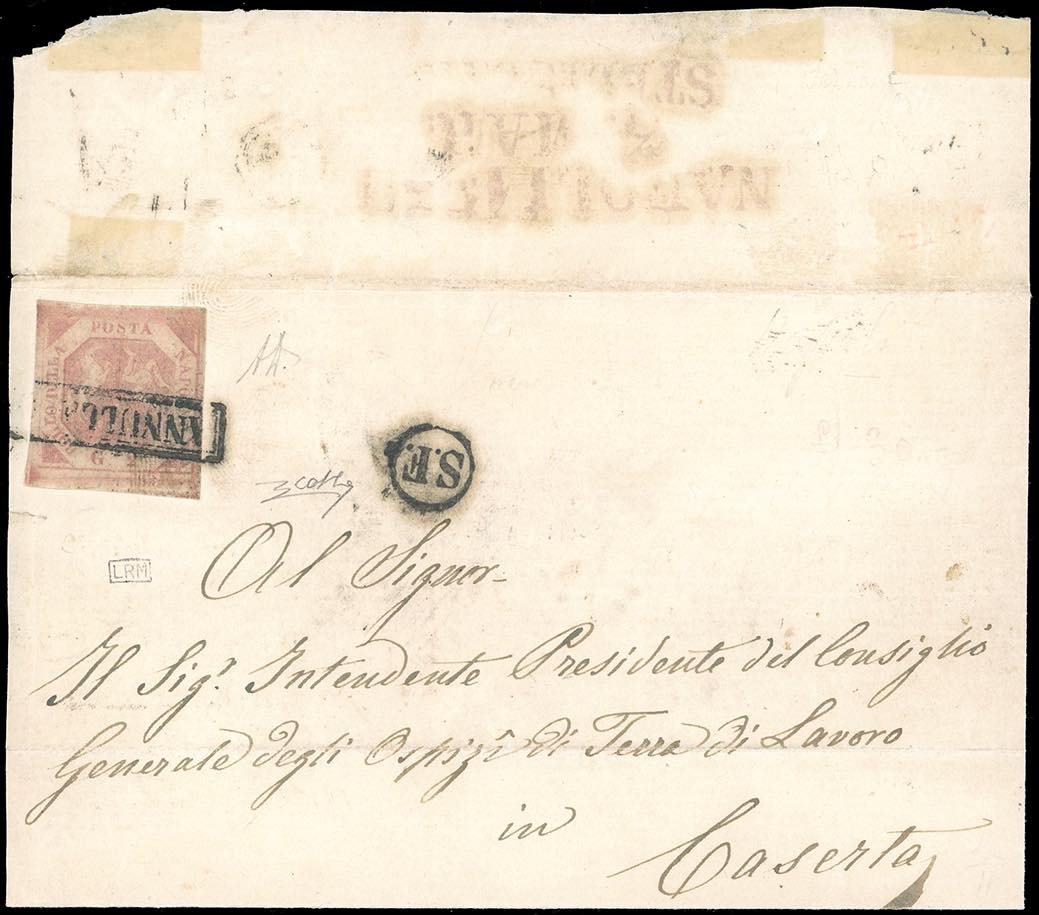 POSTA
NAPO
LO DELLA
G
ANNULL
S.F.
LRM
Al Signor
Il Sig.r Intendente Presidente del Consiglio
Generale degli Ospizi di Terra di Lavoro
in
Caserta